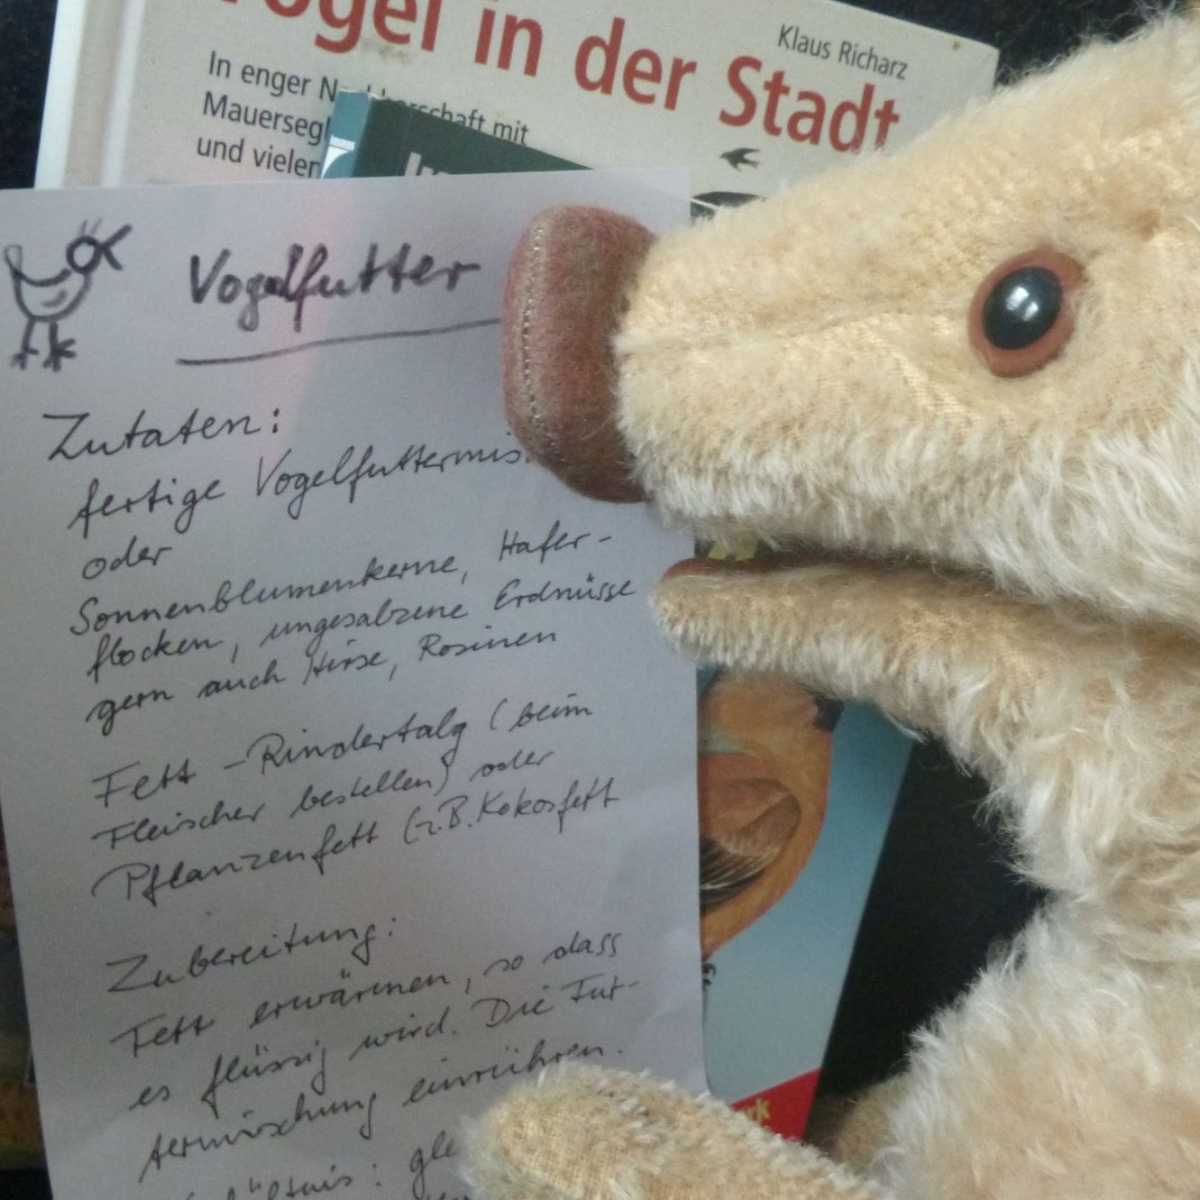 Vögel in der Stadt
Klaus Richarz
In enger Nachbarschaft mit
Mauersegl
und vielen
Vogelfutter
Zutaten:
fertige Vogelfuttermis
oder
Sonnenblumenkerne, Hafer-
flocken, ungesalzene Erdnüsse
gern auch Hirse, Rosinen
Fett - Rindertalg (beim
Fleischer bestellen) oder
Pflanzenfett (z.B. Kokosfett
Zubereitung:
Fett erwärmen, so dass
es flüssig wird. Die Fut-
termischung einrühren.